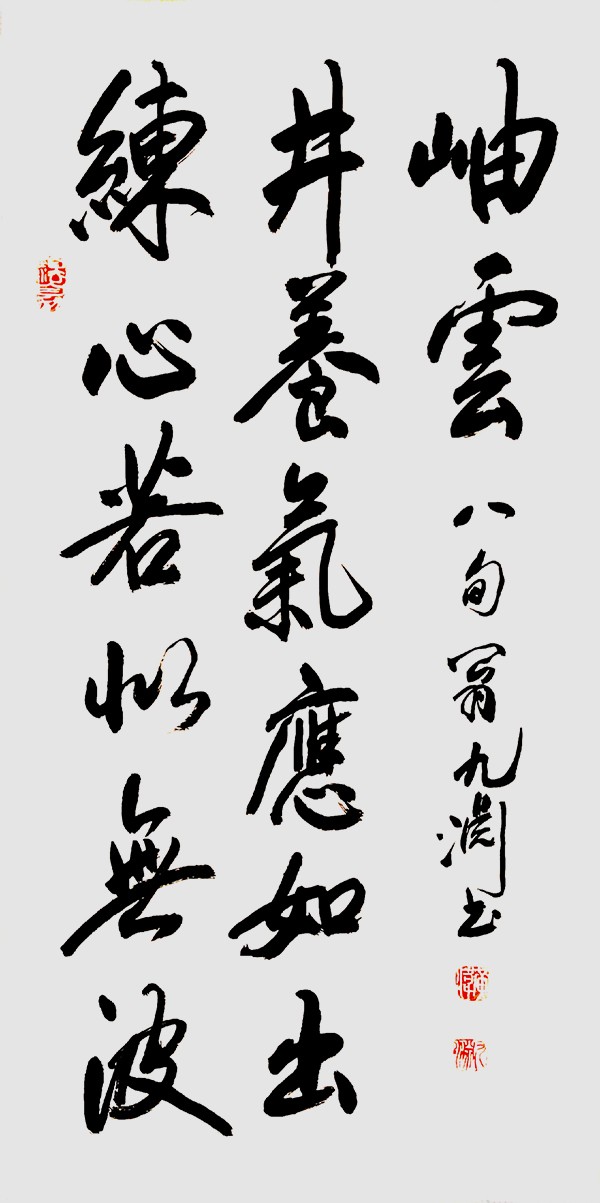 練心若似無波
井養氣應如出
岫雲
八旬翁九淵书